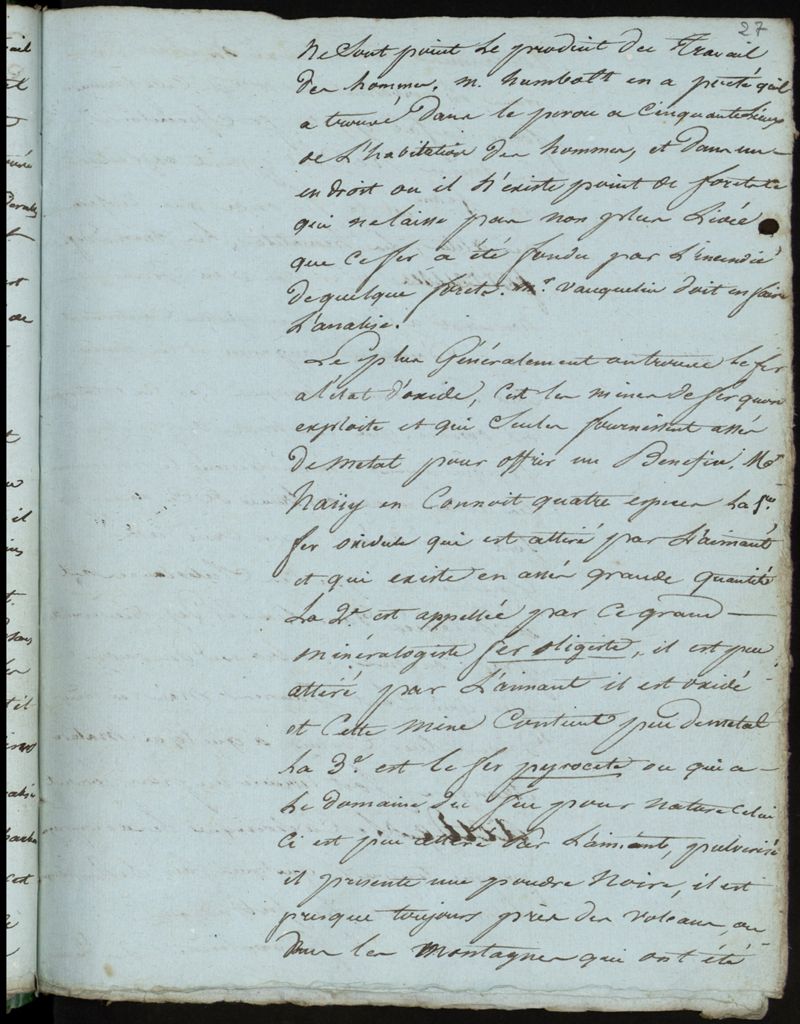 27
ne sont point le produit du travail
des hommes, m. humbolt en a porté qu'il
a trouvé dans le perou a cinquante lieux
de l'habitation des hommes, et dans un
endroit ou il n'existe point de forets
qui ne laisse pas non plus l'idée
que ce fer a été fondu par l'incendie
de quelque forets. mr. vauquelin doit en faire
l'analise.
Le plus Généralement on trouve le fer
a l'état d'oxide, c'est les mines de fer qu'on
exploite et qui seules fournissent assés
de metal pour offrir un Benefice, Mr
haüy en Connoit quatre especes La 1re
fer oxidule qui est attiré par L'aimant
et qui existe en assés grande quantité
La 2e est appellée par ce grand
minéralogiste fer oligiste, il est peu
attiré par L'aimant il est oxidé
et Cette mine Contient peu de metal
La 3e est le fer pyrocete ou qui a
le domaine du feu pour nature celui
ci est peu attiré par L'aimant, pulverisé
il presente une poudre Noire, il est
presque toujours près des volcans, ou
dans les montagnes qui ont été